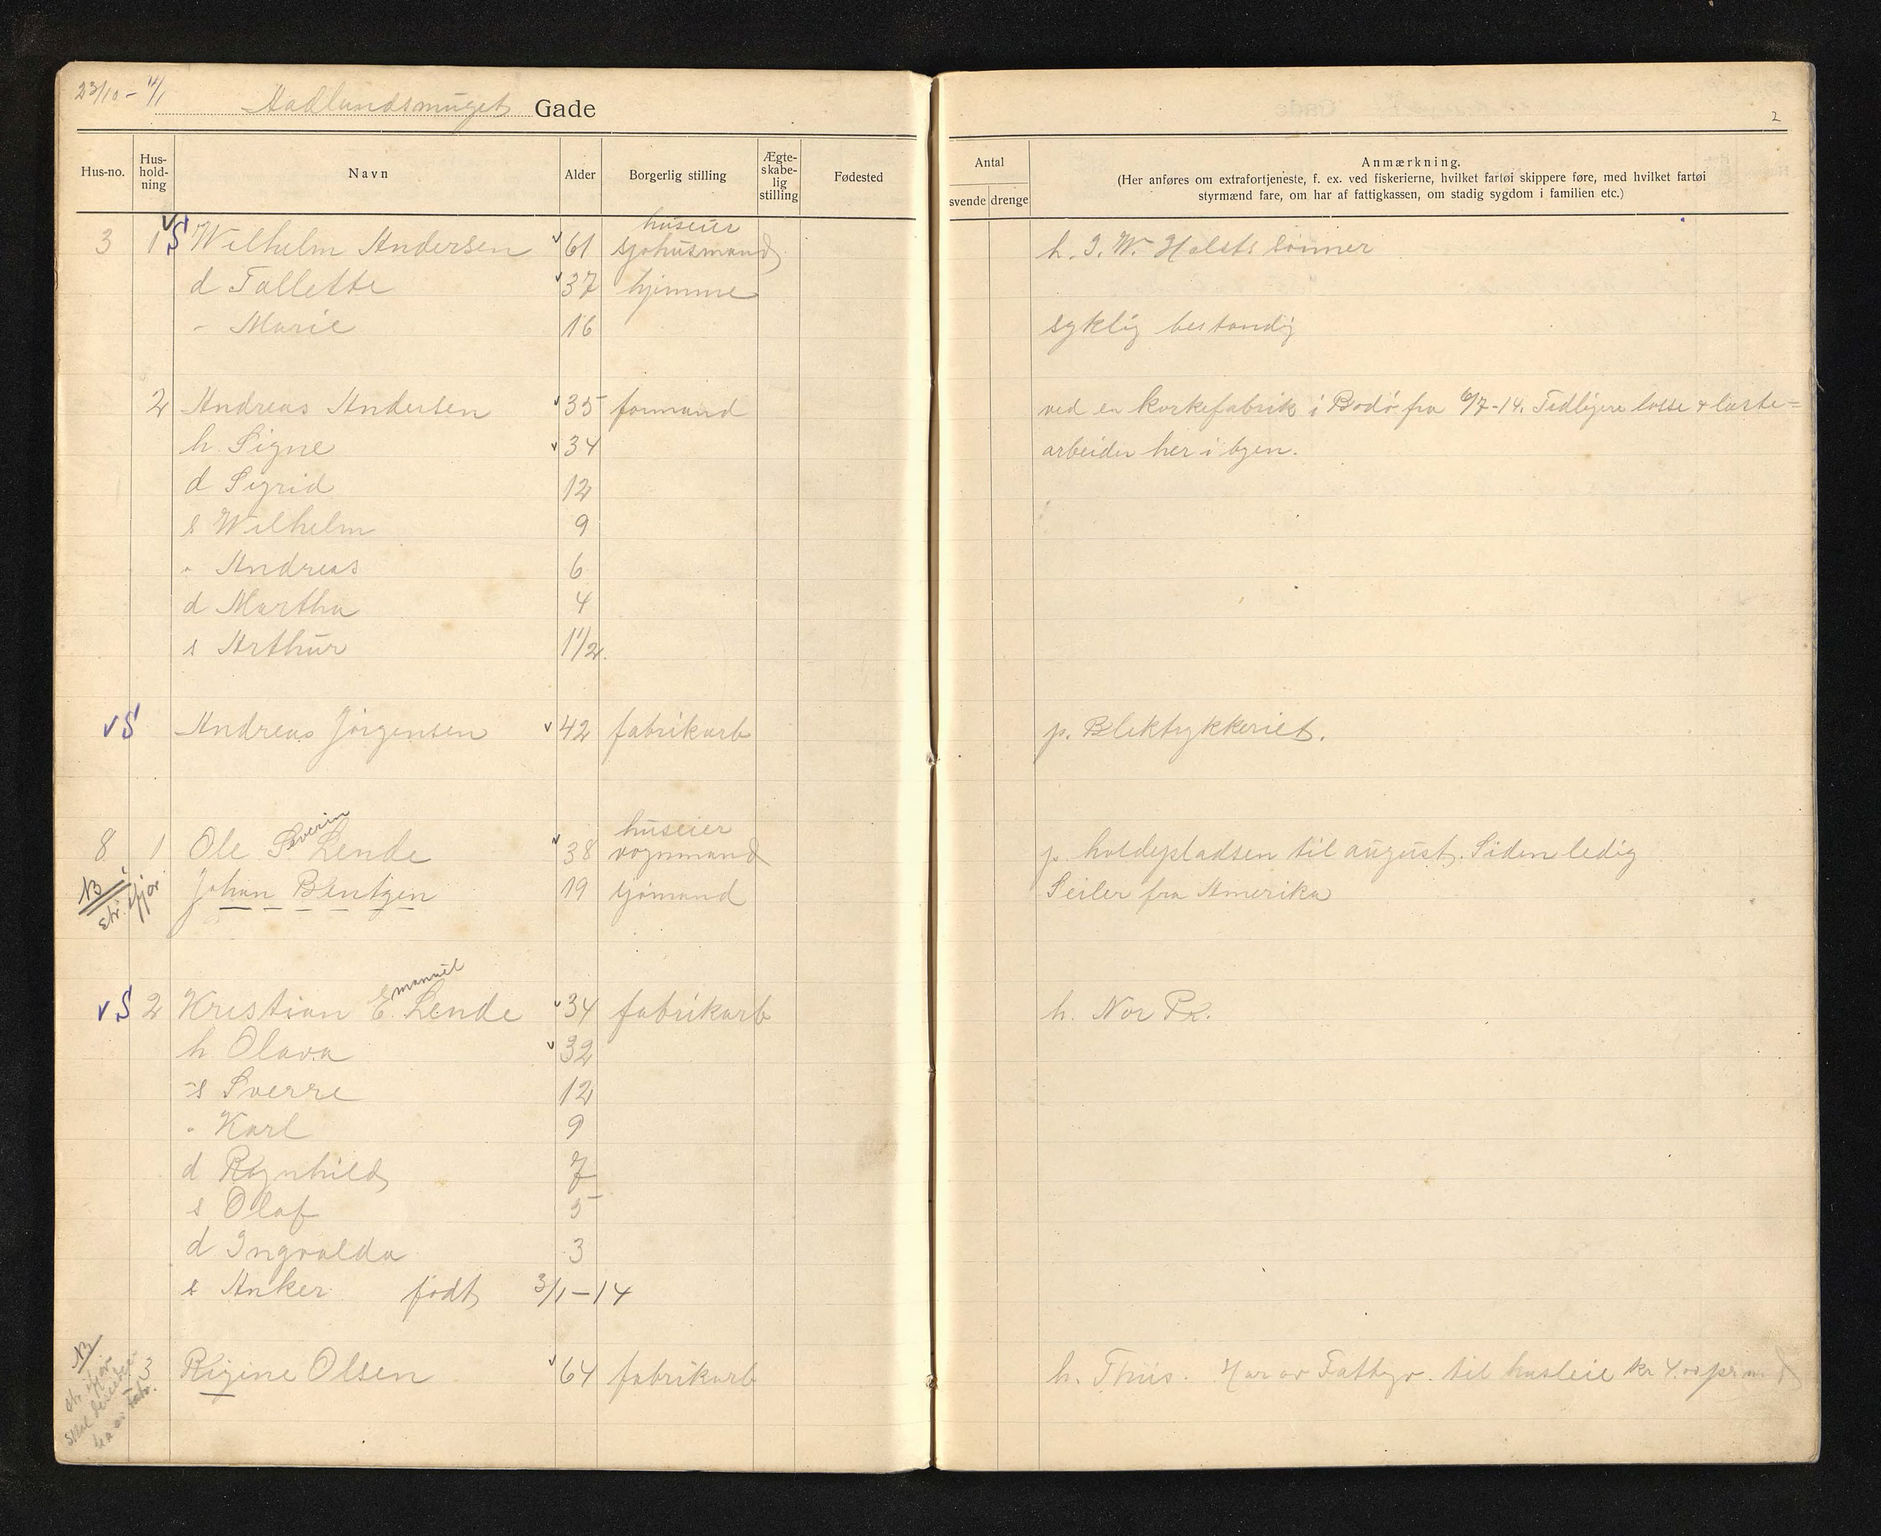 23/10 – 14/1
Aadlandsmuget Gade
2
Hus-no.
Hus-
hold-
ning
Navn
Alder
Borgerlig stilling
Ægte-
skabe-
lig
stilling
Fødested
Antal
svende drenge
Anmærkning.
(Her anføres om extrafortjeneste, f. ex. ved fiskerierne, hvilket fartøi skippere føre, med hvilket fartøi
styrmænd fare, om har af fattigkassen, om stadig sygdom i familien etc.)
huseier
3 1 v S Wilhelm Andersen v 61 sjøhusmand h. I. W. Holsts sønner
d Tallette v 37 hjemme
" Marie 16 syklig bestandig
2 Andreas Andersen v 35 formand ved en korkefabrik i Bodø fra 6/7-14. Tidligere losse & laste=
h Signe v 34 arbeider her i byen.
d Sigrid 12
s Wilhelm 9
" Andreas 6
d Martha 4
s Arthur 1 1/2
v S Andreas Jørgensen v 42 fabrikarb p. Bliktrykkeriet.
huseier
8 1 Ole Severin Lende v 38 vognmand p. holdepladsen til august. Siden ledig
NB str. ifjor Johan Bentzen 19 sjømand Seiler fra Amerika
v S 2 Kristian Emanuel Lende v 34 fabrikarb h. Nor Pr.
h Olava v 32
s Sverre 12
" Karl 9
d Ragnhild 7
s Olaf 5
d Ingvalda 3
s Anker født 3/1-14
NB 3 Regine Olsen v 64 fabrikarb h. Thiis. Har av Fattigv. til husleie kr 4.00 pr md
str. ifjor
skal
ha av